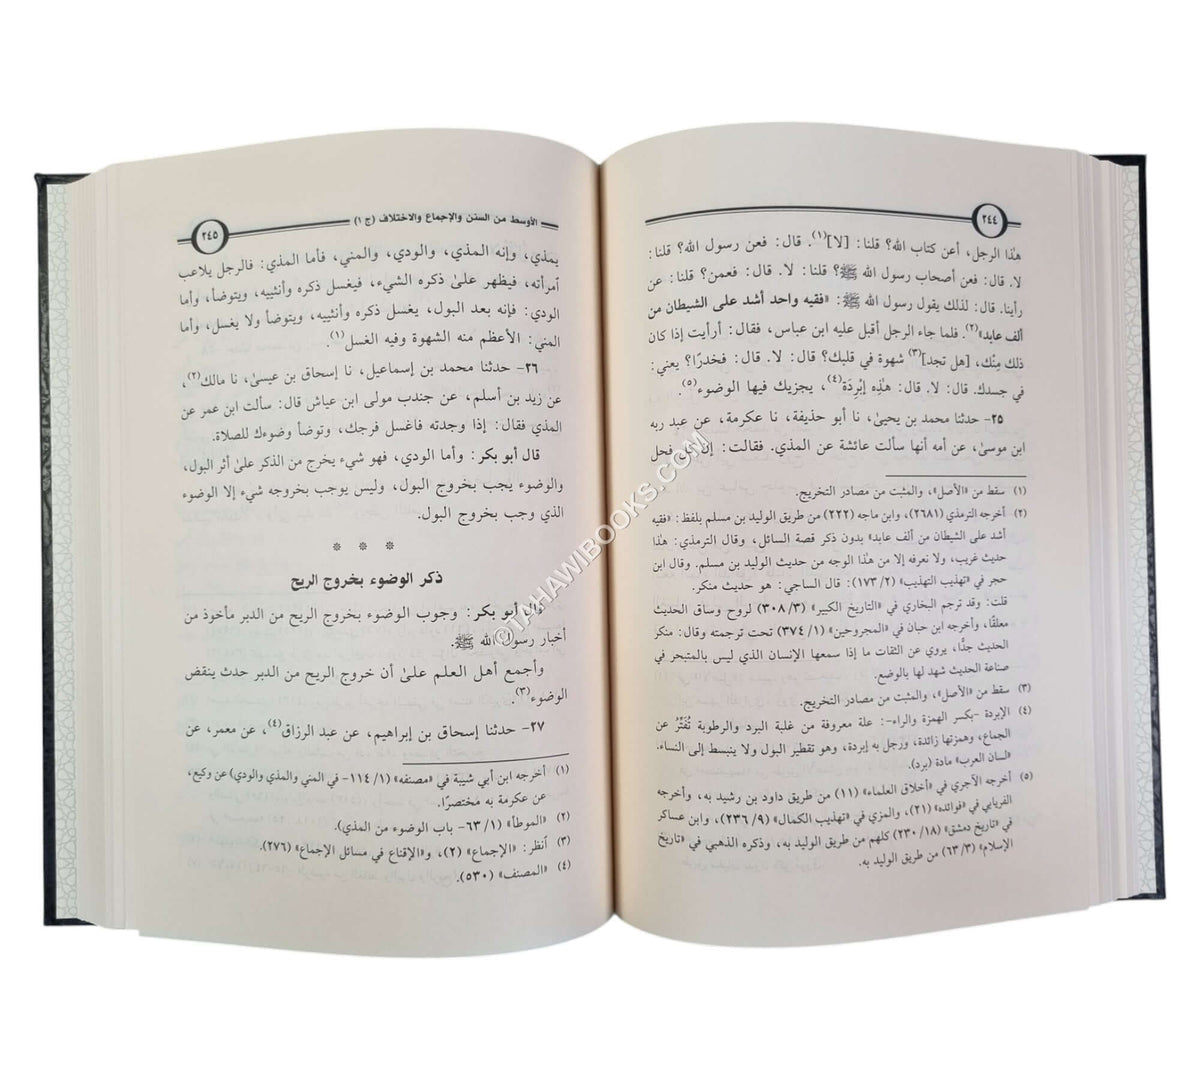 ٢٤٤
هذا الرجل، أعن كتاب الله؟ قلنا: [لا](١). قال: فعن رسول الله؟ قلنا:
لا. قال: فعن أصحاب رسول الله ﷺ؟ قلنا: لا. قال: فعمن؟ قلنا: عن
رأينا. قال: لذلك يقول رسول الله ﷺ: «فقيه واحد أشد على الشيطان من
ألف عابد»(٢). فلما جاء الرجل أقبل عليه ابن عباس، فقال: أرأيت إذا كان
ذلك مِنْك، [هل تجد](٣) شهوة في قلبك؟ قال: لا. قال: فخدرًا؟ يعني:
في جسدك. قال: لا. قال: هذِه إبْرِدَة(٤)، يجزيك فيها الوضوء(٥).
٢٥- حدثنا محمد بن يحيىٰ، نا أبو حذيفة، نا عكرمة، عن عبد ربه
ابن موسىٰ، عن أمه أنها سألت عائشة عن المذي. فقالت: إن كل فحل
(١) سقط من «الأصل»، والمثبت من مصادر التخريج.
(٢) أخرجه الترمذي (٢٦٨١)، وابن ماجه (٢٢٢) من طريق الوليد بن مسلم بلفظ: «فقيه
أشد على الشيطان من ألف عابد» بدون ذكر قصة السائل، وقال الترمذي: هذا
حديث غريب، ولا نعرفه إلا من هذا الوجه من حديث الوليد بن مسلم. وقال ابن
حجر في «تهذيب التهذيب» (٢/ ١٧٣): قال الساجي: هو حديث منكر.
قلت: وقد ترجم البخاري في «التاريخ الكبير» (٣/ ٣٠٨) لروح وساق الحديث
معلقًا، وأخرجه ابن حبان في «المجروحين» (١/ ٣٧٤) تحت ترجمته وقال: منكر
الحديث جدًا، يروي عن الثقات ما إذا سمعها الإنسان الذي ليس بالمتبحر في
صناعة الحديث شهد لها بالوضع.
(٣) سقط من «الأصل»، والمثبت من مصادر التخريج.
(٤) الإبردة -بكسر الهمزة والراء-: علة معروفة من غلبة البرد والرطوبة تُفَتِّرُ عن
الجماع، وهمزتها زائدة، ورجل به إبردة، وهو تقطير البول ولا ينبسط إلى النساء.
«لسان العرب» مادة (برد).
(٥) أخرجه الآجري في «أخلاق العلماء» (١١) من طريق داود بن رشيد به، وأخرجه
الفريابي في «فوائده» (٢١)، والمزي في «تهذيب الكمال» (٩/ ٢٣٦)، وابن عساكر
في «تاريخ دمشق» (١٨/ ٢٣٠) كلهم من طريق الوليد به، وذكره الذهبي في «تاريخ
الإسلام» (٣/ ٦٣) من طريق الوليد به.
الأوسط من السنن والإجماع والاختلاف (ج ١)
٢٤٥
يمذي، وإنه المذي، والودي، والمني، فأما المذي: فالرجل يلاعب
أمرأته، فيظهر علىٰ ذكره الشيء، فيغسل ذكره وأنثييه، ويتوضأ، وأما
الودي: فإنه بعد البول، يغسل ذكره وأنثييه، ويتوضأ ولا يغسل، وأما
المني: الأعظم منه الشهوة وفيه الغسل(١).
٢٦- حدثنا محمد بن إسماعيل، نا إسحاق بن عيسىٰ، نا مالك(٢)،
عن زيد بن أسلم، عن جندب مولى ابن عياش قال: سألت ابن عمر عن
المذي فقال: إذا وجدته فاغسل فرجك، وتوضأ وضوءك للصلاة.
قال أبو بكر: وأما الودي، فهو شيء يخرج من الذكر علىٰ أثر البول،
والوضوء يجب بخروج البول، وليس يوجب بخروجه شيء إلا الوضوء
الذي وجب بخروج البول.
* * *
ذكر الوضوء بخروج الريح
قال أبو بكر: وجوب الوضوء بخروج الريح من الدبر مأخوذ من
أخبار رسول الله ﷺ.
وأجمع أهل العلم علىٰ أن خروج الريح من الدبر حدث ينقض
الوضوء(٣).
٢٧- حدثنا إسحاق بن إبراهيم، عن عبد الرزاق(٤)، عن معمر، عن
(١) أخرجه ابن أبي شيبة في «مصنفه» (١/ ١١٤- في المني والمذي والودي) عن وكيع،
عن عكرمة به مختصرًا.
(٢) «الموطأ» (١/ ٦٣- باب الوضوء من المذي).
(٣) أنظر: «الإجماع» (٢)، و«الإقناع في مسائل الإجماع» (٢٧٦).
(٤) «المصنف» (٥٣٠).
©TAHAWIBOOKS.COM